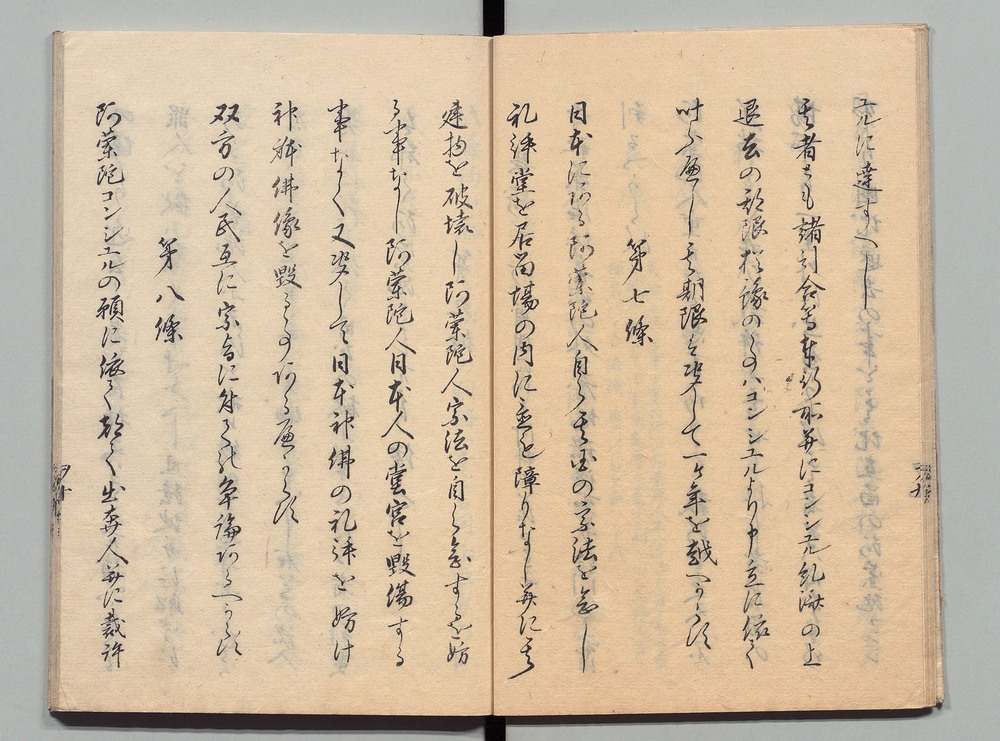 エルに達すへし
其者とも諸引合等奉行所并にコンシユル糺済の上
退去の期限猶豫の為ハコンシユルより申立に依て
叶ふ廉し其期限ハ決して一ケ年を越へからす
第七條
日本にある阿蘭陀人自ら其国の宗法を念し
礼拝堂を居留場の内に置も障りなし并に其
建物を破壊し阿蘭陀人宗法を自ら念するを妨
る事なし阿蘭陀人日本人の堂宮を毀傷する
事なく又決して日本神佛の礼拝を妨け
神体佛像を毀る事ある廉からす
双方の人民互に宗旨に付ての争論あるへからす
第八條
阿蘭陀コンシユルの願に依て都て出奔人并に裁許